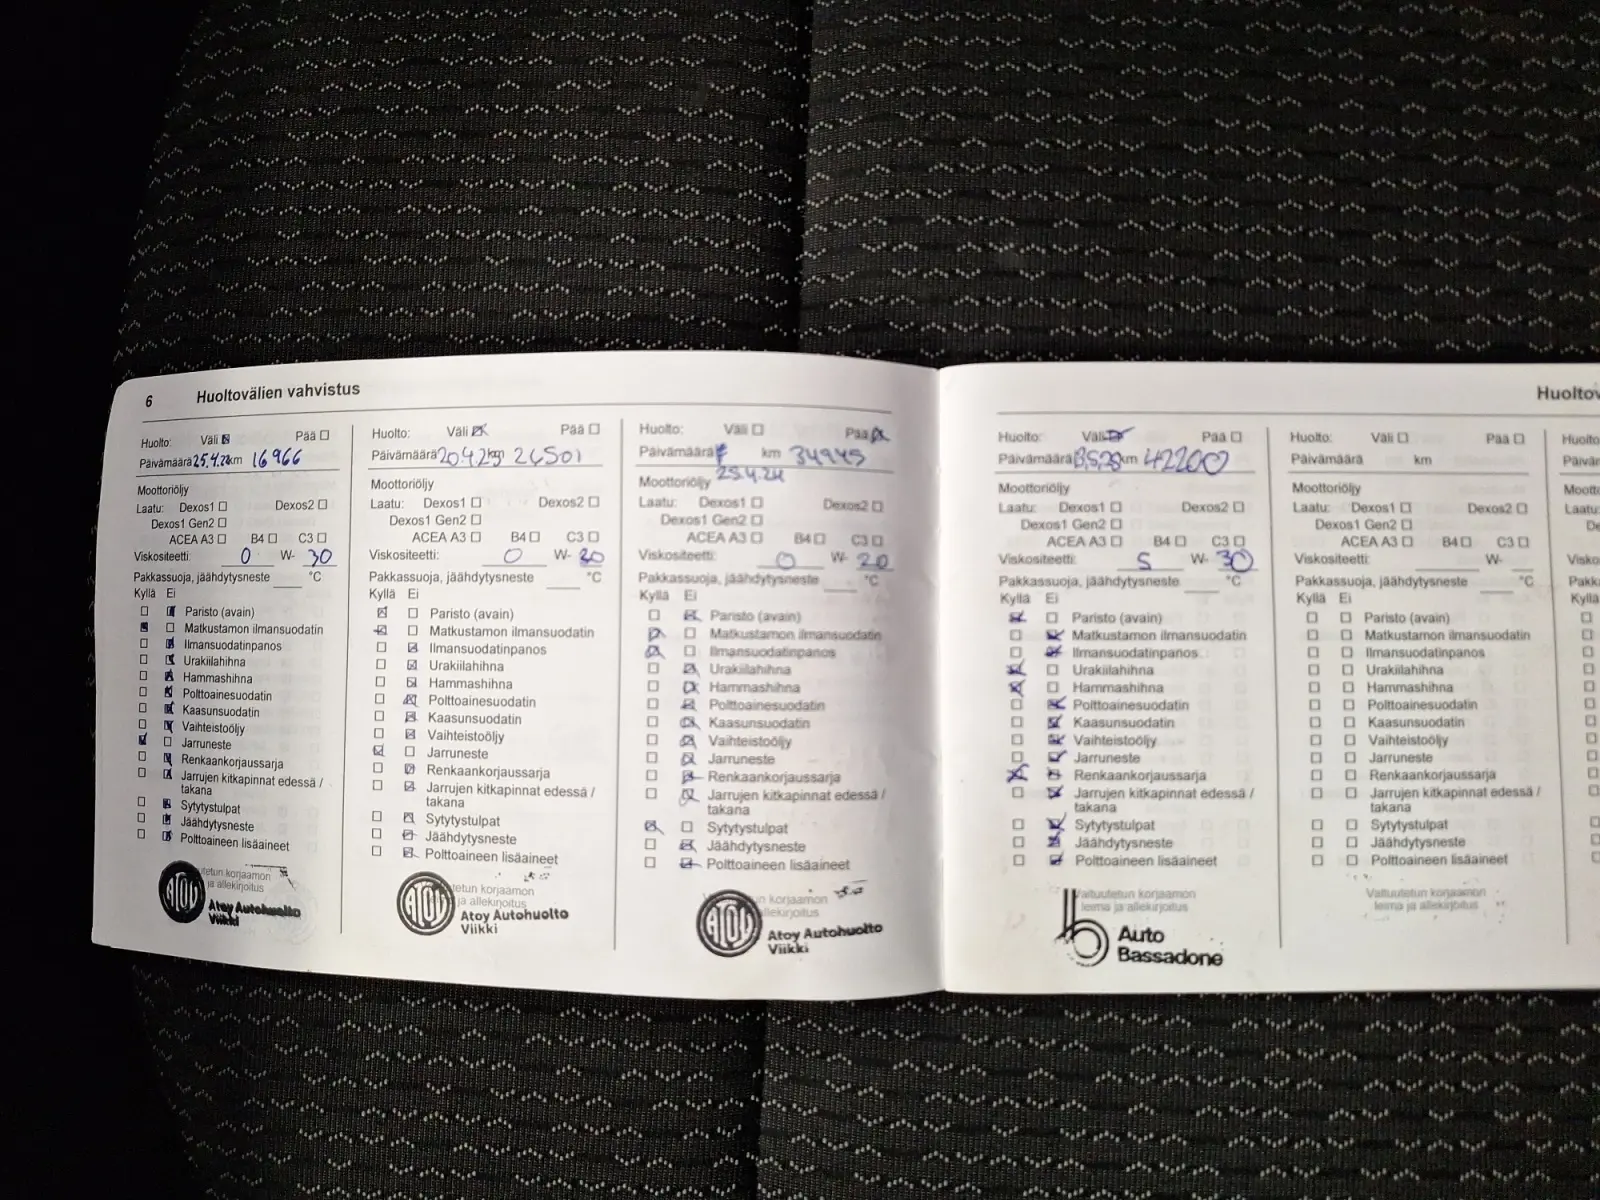 6 Huoltovälien vahvistus
Huolto: Väli Pää
Päivämäärä 25.4.2 km 16966
Moottoriöljy
Laatu: Dexos1 Dexos2
Dexos1 Gen2
ACEA A3 B4 C3
Viskositeetti: 0 W- 30
Pakkassuoja, jäähdytysneste °C
Kyllä Ei
Paristo (avain)
Matkustamon ilmansuodatin
Ilmansuodatinpanos
Urakiilahihna
Hammashihna
Polttoainesuodatin
Kaasunsuodatin
Vaihteistoöljy
Jarruneste
Renkaankorjaussarja
Jarrujen kitkapinnat edessä /
takana
Sytytystulpat
Jäähdytysneste
Polttoaineen lisäaineet
korjaamon
ja allekirjoitus
ATOY
Atoy Autohuolto
Viikki
Huolto: Väli Pää
Päivämäärä 20.4.23 km 26501
Moottoriöljy
Laatu: Dexos1 Dexos2
Dexos1 Gen2
ACEA A3 B4 C3
Viskositeetti: 0 W- 20
Pakkassuoja, jäähdytysneste °C
Kyllä Ei
Paristo (avain)
Matkustamon ilmansuodatin
Ilmansuodatinpanos
Urakiilahihna
Hammashihna
Polttoainesuodatin
Kaasunsuodatin
Vaihteistoöljy
Jarruneste
Renkaankorjaussarja
Jarrujen kitkapinnat edessä /
takana
Sytytystulpat
Jäähdytysneste
Polttoaineen lisäaineet
korjaamon
ja allekirjoitus
ATOY
Atoy Autohuolto
Viikki
Huolto: Väli Pää
Päivämäärä km 34945
Moottoriöljy 25.4.24
Laatu: Dexos1 Dexos2
Dexos1 Gen2
ACEA A3 B4 C3
Viskositeetti: 0 W- 20
Pakkassuoja, jäähdytysneste °C
Kyllä Ei
Paristo (avain)
Matkustamon ilmansuodatin
Ilmansuodatinpanos
Urakiilahihna
Hammashihna
Polttoainesuodatin
Kaasunsuodatin
Vaihteistoöljy
Jarruneste
Renkaankorjaussarja
Jarrujen kitkapinnat edessä /
takana
Sytytystulpat
Jäähdytysneste
Polttoaineen lisäaineet
korjaamon
allekirjoitus
ATOY
Atoy Autohuolto
Viikki
Huolto: Väli Pää
Päivämäärä km 42200
Moottoriöljy
Laatu: Dexos1 Dexos2
Dexos1 Gen2
ACEA A3 B4 C3
Viskositeetti: 5 W- 30
Pakkassuoja, jäähdytysneste °C
Kyllä Ei
Paristo (avain)
Matkustamon ilmansuodatin
Ilmansuodatinpanos
Urakiilahihna
Hammashihna
Polttoainesuodatin
Kaasunsuodatin
Vaihteistoöljy
Jarruneste
Renkaankorjaussarja
Jarrujen kitkapinnat edessä /
takana
Sytytystulpat
Jäähdytysneste
Polttoaineen lisäaineet
Valtuutetun korjaamon
leima ja allekirjoitus
Auto
Bassadone
Huolto: Väli Pää
Päivämäärä km
Moottoriöljy
Laatu: Dexos1 Dexos2
Dexos1 Gen2
ACEA A3 B4 C3
Viskositeetti: W-
Pakkassuoja, jäähdytysneste °C
Kyllä Ei
Paristo (avain)
Matkustamon ilmansuodatin
Ilmansuodatinpanos
Urakiilahihna
Hammashihna
Polttoainesuodatin
Kaasunsuodatin
Vaihteistoöljy
Jarruneste
Renkaankorjaussarja
Jarrujen kitkapinnat edessä /
takana
Sytytystulpat
Jäähdytysneste
Polttoaineen lisäaineet
Valtuutetun korjaamon
leima ja allekirjoitus